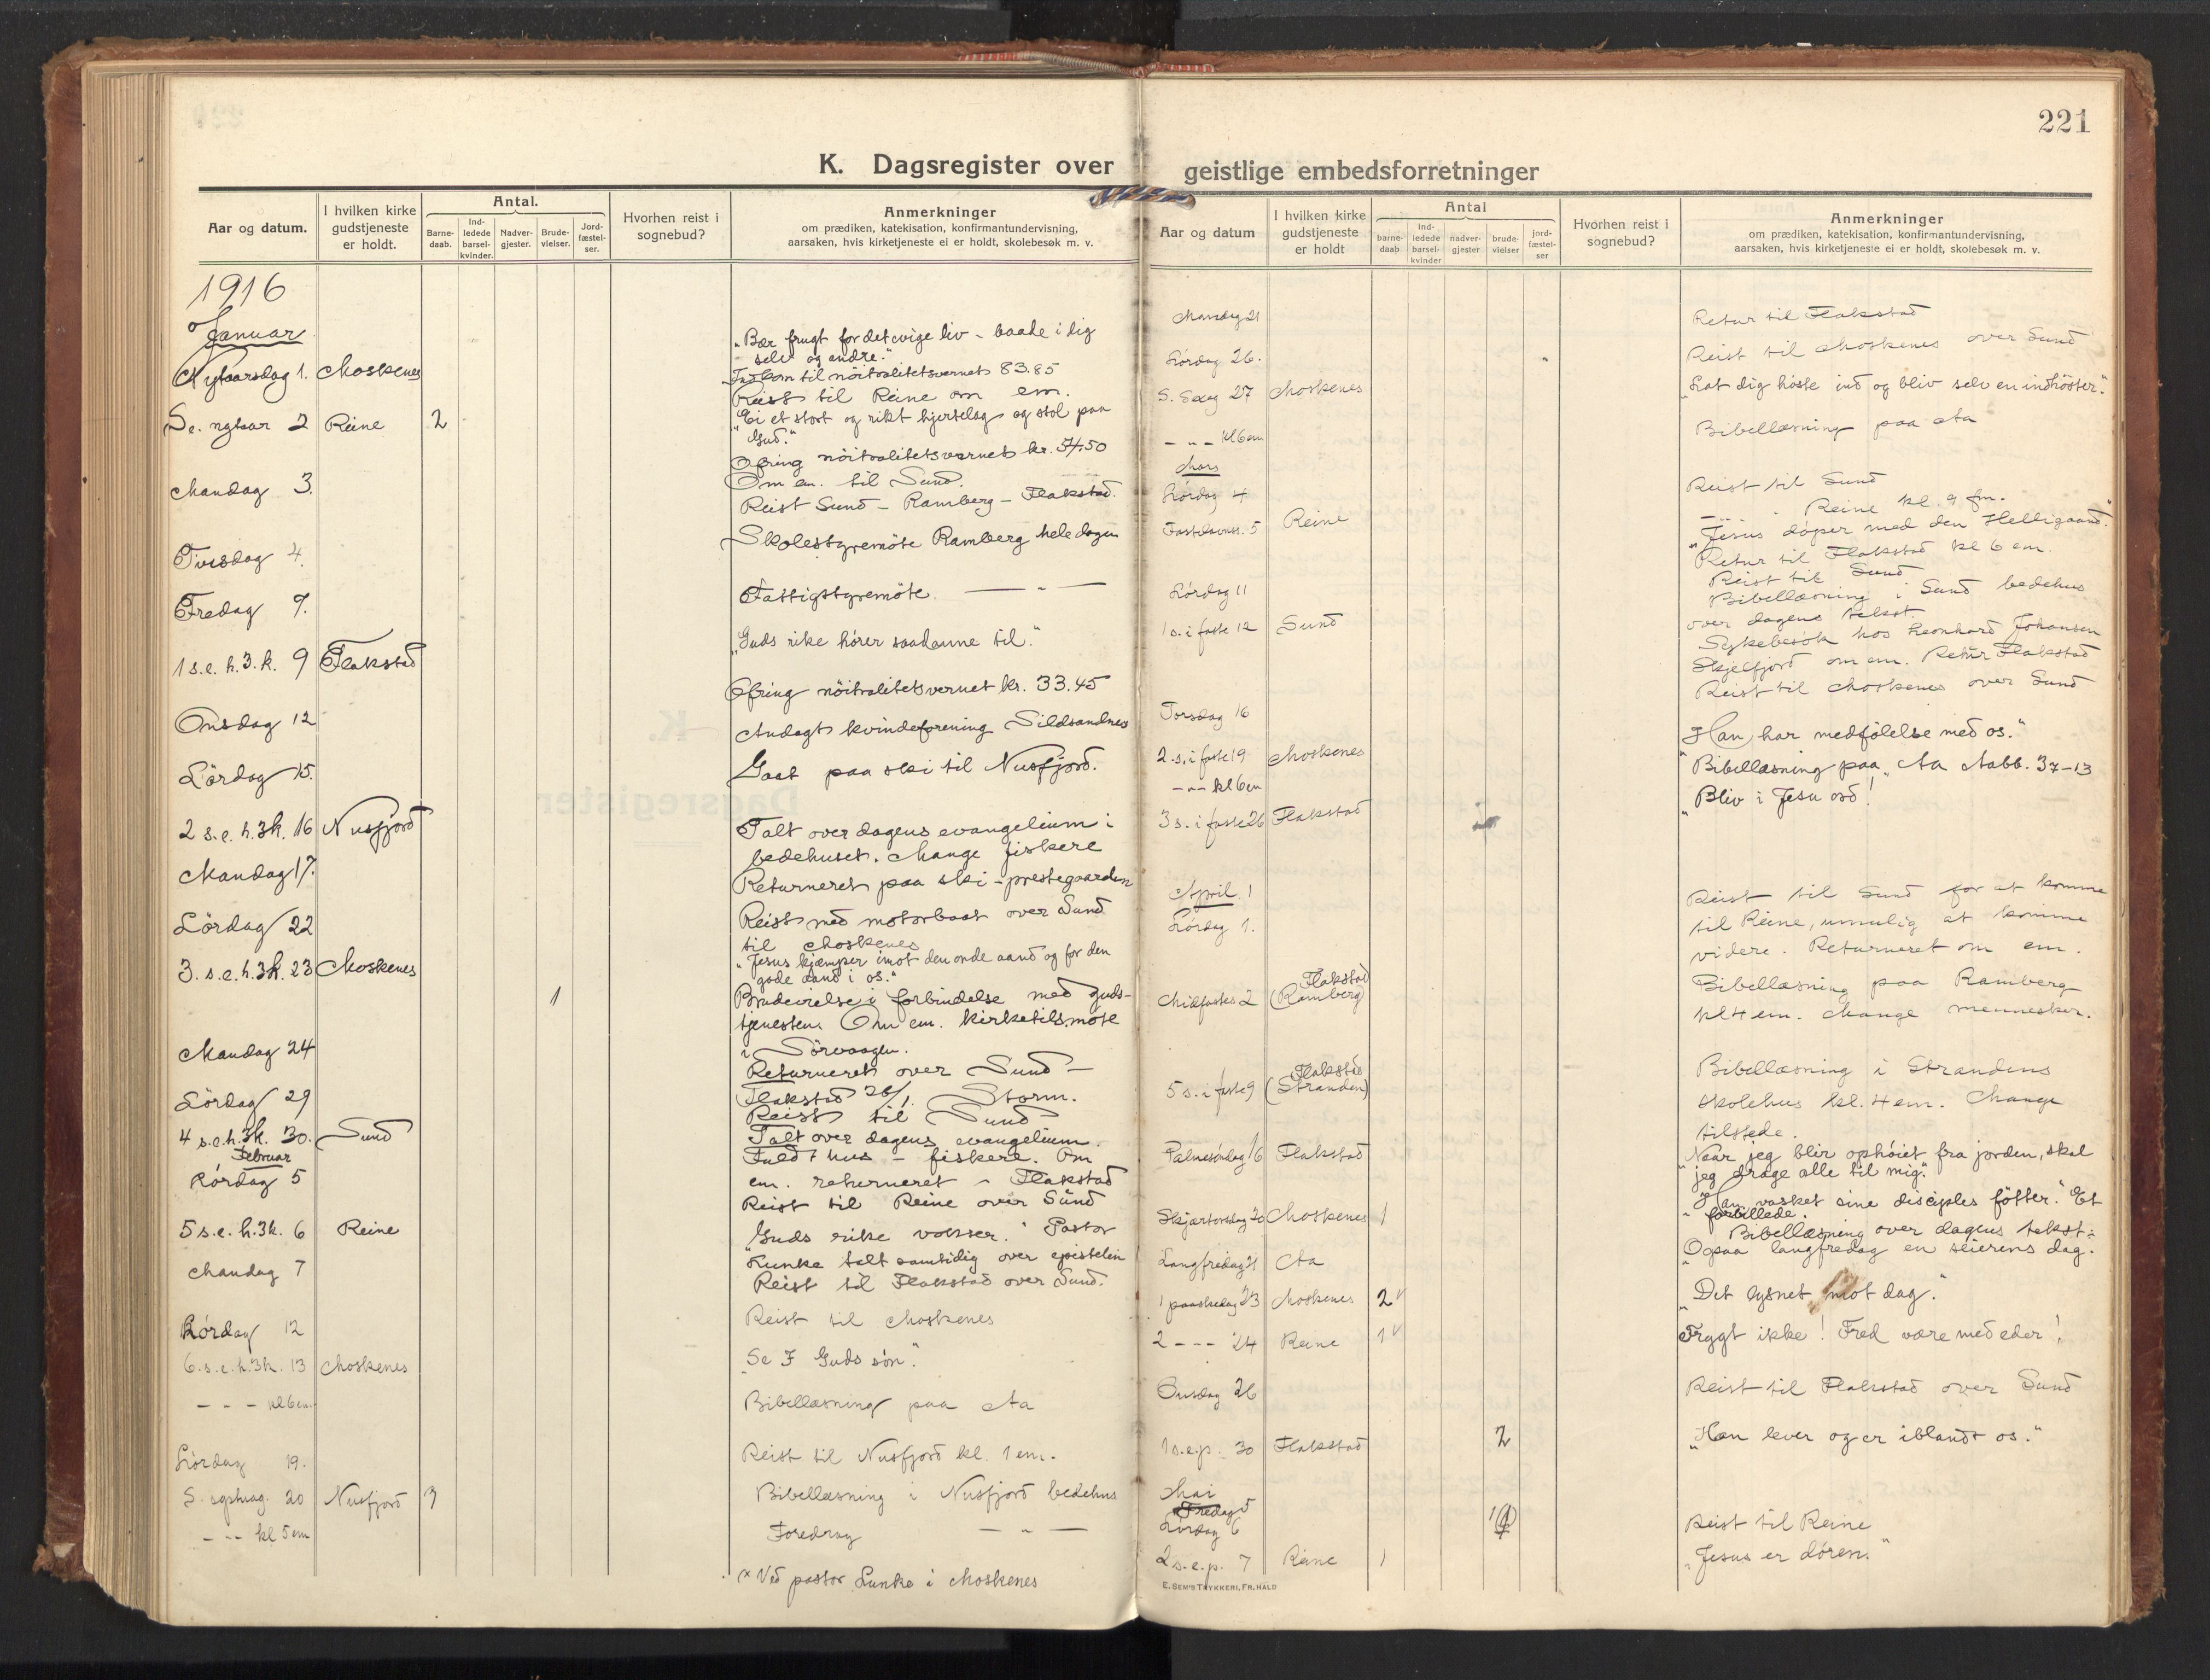 221
K. Dagsregister over geistlige embedsforretninger
Aar og datum. I hvilken kirke gudstjeneste er holdt. Antal. Barne-daab. Ind-ledede barsel-kvinder. Nadver-gjester. Brude-vielser. Jord-fæstel-ser. Hvorhen reist i sognebud? Anmerkninger om prædiken, katekisation, konfirmantundervisning, aarsaken, hvis kirketjeneste ei er holdt, skolebesøk m. v.
1916
Januar
"Bær frugt for det evige liv - baade i dig
selv og andre."
Nytaarsdag 1. Moskenes
Indkom til nöitralitetsvernet 83.85
Reist til Reine om em.
Se. nytaar 2 Reine 2
"Ei et stort og rikt hjertelag og stol paa
Gud."
Ofring nöitralitetsvernet kr. 54.50
Om em. til Sund.
Mandag 3.
Reist Sund - Ramberg - Flakstad.
Tirsdag 4.
Skolestyremöte Ramberg hele dagen
Fredag 7.
Fattigstyremöte. — " —
1 s.e.h.3.k. 9 Flakstad
"Guds rike hører saadanne til."
Ofring nöitralitetsvernet kr. 33.45
Onsdag 12
Andagt kvindeforening Sildsandnes
Lördag 15.
Gaat paa ski til Nusfjord.
2 s.e.h.3k. 16 Nusfjord
Talt over dagens evangelium i
bedehuset. Mange fiskere
Mandag 17.
Returneret paa ski - prestegaarden
Lördag 22
Reist med motorbaat over Sund
til Moskenes
3. s.e.h.3k. 23 Moskenes
"Jesus kjæmper imot den onde aand og for den
gode aand i os."
1
Brudevielse i forbindelse med guds-
tjenesten. Om em. kirketils.möte
i Sörvaagen.
Mandag 24
Returneret over Sund -
Flakstad 26/1. Storm.
Lördag 29
Reist til Sund
4 s.e.h.3k. 30. Sund
Talt over dagens evangelium.
Fuldt hus - fiskere. Om
em. returneret - Flakstad
Februar
Lørdag 5
Reist til Reine over Sund
5 s.e.h.3k. 6 Reine
"Guds rike vokser." Pastor
Lunke talt samtidig over epistelen
Mandag 7
Reist til Flakstad over Sund.
Lørdag 12
Reist til Moskenes
6.s.e.h.3k. 13 Moskenes
"Se I Guds søn".
- - - kl 6 em.
Bibellæsning paa Aa
Lørdag 19.
Reist til Nusfjord kl. 1 em.
S. sptuag. 20 Nusfjord 3
Bibellæsning i Nusfjord bedehus
- -- kl 5 em
Foredrag — " —
x Ved pastor Lunke i Moskenes
Aar og datum I hvilken kirke gudstjeneste er holdt Antal barne-daab Ind-ledede barsel-kvinder nadver-gjester brude-vielser jord-fæstel-ser Hvorhen reist i sognebud? Anmerkninger om prædiken, katekisation, konfirmantundervisning, aarsaken, hvis kirketjeneste ei er holdt, skolebesøk m. v.
Mandag 21
Retur til Flakstad
Lördag 26.
Reist til Moskenes over Sund
S. Sexag 27 Moskenes
"Lat dig høste ind og bliv selv en indhöster."
- " - kl 6 em
Bibellæsning paa Aa
Mars
Lørdag 4
Reist til Sund
Fastelavnss. 5 Reine
- " - Reine kl 9 fm.
"Jesus döper med den Helligaand."
Retur til Flakstad kl 6 em.
Lørdag 11
Reist til Sund
1 s. i faste 12 Sund
Bibellæsning i Sund bedehus
over dagens tekst.
Sykebesök hos Leonhard Johansen
Skjelfjord om em. Retur Flakstad
Torsdag 16
Reist til Moskenes over Sund
2. s. i faste 19 Moskenes
"Han har medfölelse med os."
- " - kl 6 em
Bibellæsning paa Aa
3 s. i faste 26 Flakstad
"Bliv i Jesu ord!
April 1
Lørdag 1.
Reist til Sund for at komme
til Reine, umulig at komme
videre. Returneret om em.
Midfastes 2 Flakstad (Ramberg)
Bibellæsning paa Ramberg
kl 4 em. Mange mennesker.
5 s. i faste 9 Flakstad (Stranden)
Bibellæsning i Strandens
skolehus kl. 4 em. Mange
tilstede.
Palmesöndag 16 Flakstad
"Naar jeg blir ophøiet fra jorden, skal
jeg drage alle til mig."
Skjærtorsdag 20 Moskenes 1
"Han vasket sine disciples fötter." Et
forbillede.
Langfredag 21 Aa
Bibellæsning over dagens tekst:
"Ogsaa langfredag en seierens dag.
1 paaskedag 23 Moskenes 2
"Det lysnet mot dag."
2 - - - 24 Reine 1
Frygt ikke! Fred være med eder!
Onsdag 26
Reist til Flakstad over Sund
1 s.e.p. 30 Flakstad 2
"Han lever og er iblandt os."
Mai
Fredag 5
Lördag 6
Reist til Reine
2 s.e.p. 7 Reine 1
"Jesus er dören."
E. SEM'S TRYKKERI, FR.HALD